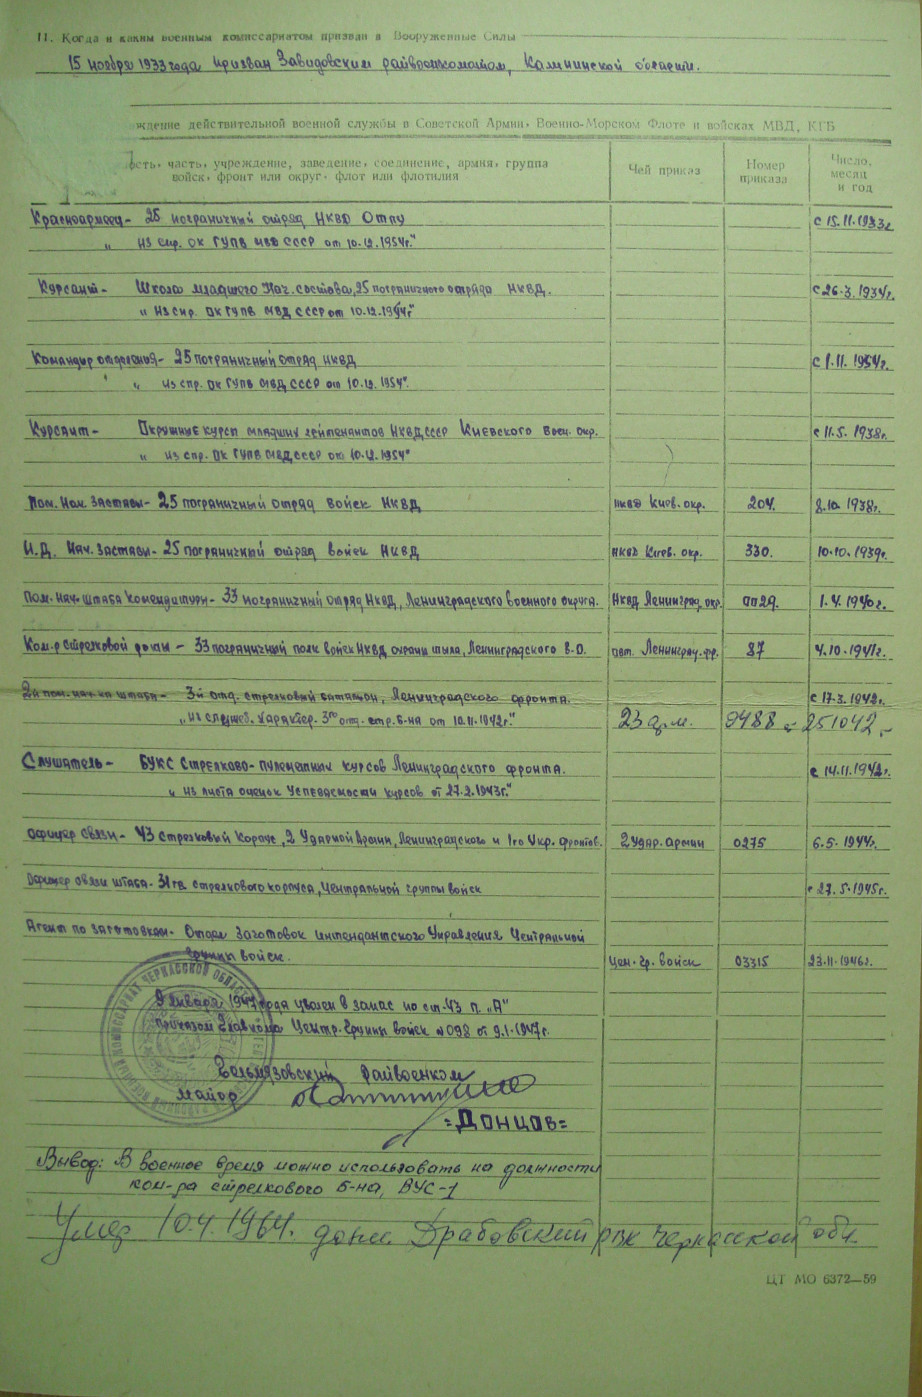 11. Когда и каким военным комиссариатом призван в Вооруженные Силы
15 ноября 1933 года призван Завидовским райвоенкоматом, Калининской области.
ждение действительной военной службы в Советской Армии, Военно-Морском Флоте и войсках МВД, КГБ
ость, часть, учреждение, заведение, соединение, армия, группа войск, фронт или округ, флот или флотилия
Чей приказ
Номер приказа
Число, месяц и год
Красноармеец - 25 пограничный отряд НКВД ОГПУ с 15.11.1933г.
„ из спр. ОК ГУПВ МВД СССР от 10.12.1954г."
Курсант - Школа младшего Нач. состава, 25 пограничного отряда НКВД. с 26.3.1934г.
„ Из спр. ОК ГУПВ МВД СССР от 10.12.1954г."
Командир отделения - 25 пограничный отряд НКВД с 1.11.
„ Из спр. ОК ГУПВ МВД СССР от 10.12.1954".
Курсант - Окружные курсы младших лейтенантов НКВД СССР Киевского воен. окр. с 11.5.1938г.
„ Из спр. ОК ГУПВ МВД СССР от 10.12.1954"
Пом. Нач. заставы - 25 пограничный отряд войск НКВД НКВД Киев. окр. 204. 8.10.1938г.
И.Д. Нач. заставы - 25 пограничный отряд войск НКВД НКВД Киев. окр. 330. 10.10.1939г.
Пом. нач. штаба комендатуры - 33 пограничный отряд НКВД, Ленинградского военного округа. НКВД Ленинград. окр. 0029. 1.4.1940г.
Ком-р стрелковой роты - 33 пограничный полк войск НКВД охраны тыла, Ленинградского в.о. Ленинград. фр. 87 4.10.1941г.
2й пом. нач-ка штаба - 3й отд. стрелковый батальон, Ленинградского фронта. с 17.3.1942г.
„Из служеб. характер. 3го отд. стр. б-на от 10.11.1942г." 23 а. м. 0488 251042
Слушатель - БУКС Стрелково-пулеметных курсов Ленинградского фронта. с 14.11.1942г.
„ из листа оценок успеваемости курсов от 27.2.1943г."
Офицер связи - 43 стрелковый корпус, 2 Ударной Армии, Ленинградского и 1го Укр. фронтов. 2 Удар. Армии 0275 6.5.1944г.
Офицер связи штаба - 31гв. стрелкового корпуса, Центральной группы войск с 27.5.1945г.
Агент по заготовкам - Отдел заготовок интендантского Управления Центральной
группы войск. Цен. гр. войск 03315 23.11.1946г.
9 января 1947 года уволен в запас по ст. 43 п. „А"
приказом Главкома Центр. Группы войск №098 от 9.1.1947г.
Гельмязовский райвоенком
майор
=Донцов=
Вывод: В военное время можно использовать на должности
ком-ра стрелкового б-на, ВУС-1
Умер 10.4.1964г. Драбовский РВК Черкасской обл.
ЦТ МО 6372—59